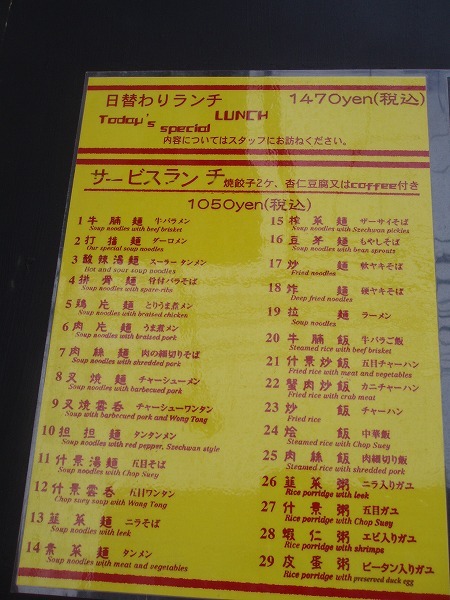 日替わりランチ 1470yen(税込)
Today's special LUNCH
内容についてはスタッフにお訪ねください。
サービスランチ 焼餃子2ケ、杏仁豆腐又はcoffee付き
1050yen(税込)
1 牛腩麺 牛バラメン
Soup noodles with beef brisket
2 打撸麺 ダーロメン
Our special soup noodles
3 酸辣湯麺 スーラータンメン
Hot and sour soup noodles
4 排骨麺 骨付バラそば
Soup noodles with spare-ribs
5 鶏片麺 とりうま煮メン
Soup noodles with braised chicken
6 肉片麺 うま煮メン
Soup noodles with braized pork
7 肉絲麺 肉の細切りそば
Soup noodles with shredded pork
8 叉焼麺 チャーシューメン
Soup noodles with barbecued pork
9 叉焼雲呑 チャーシューワンタン
Soup with barbecured pork and Wong Tong
10 担担麺 タンタンメン
Soup noodles with red pepper, Szechwan style
11 什景湯麺 五目そば
Soup noodles with Chop Suey
12 什景雲呑 五目ワンタン
Chop suey soup with Wong Tong
13 韮菜麺 ニラそば
Soup noodles with leek
14 素菜麺 タンメン
Soup noodles with meat and vegetables
15 搾菜麺 ザーサイそば
Soup noodles with Szechwan pickles
16 豆芽麺 もやしそば
Soup noodles with bean sprouts
17 炒麺 軟ヤキそば
Fried noodles
18 炸麺 硬ヤキそば
Deep fried noodles
19 拉麺 ラーメン
Soup noodles
20 牛腩飯 牛バラご飯
Steamed rice with beef brisket
21 什景炒飯 五目チャーハン
Fried rice with meat and vegetables
22 蟹肉炒飯 カニチャーハン
Fried rice with crab meat
23 炒飯 チャーハン
Fried rice
24 烩飯 中華飯
Steamed rice with Chop Suey
25 肉絲飯 肉細切り飯
Steamed rice with shredded pork
26 韮菜粥 ニラ入りガユ
Rice porridge with leek
27 什景粥 五目ガユ
Rice porridge with Chop Suey
28 蝦仁粥 エビ入りガユ
Rice porridge with shrimps
29 皮蛋粥 ピータン入りガユ
Rice porridge with preserved duck egg